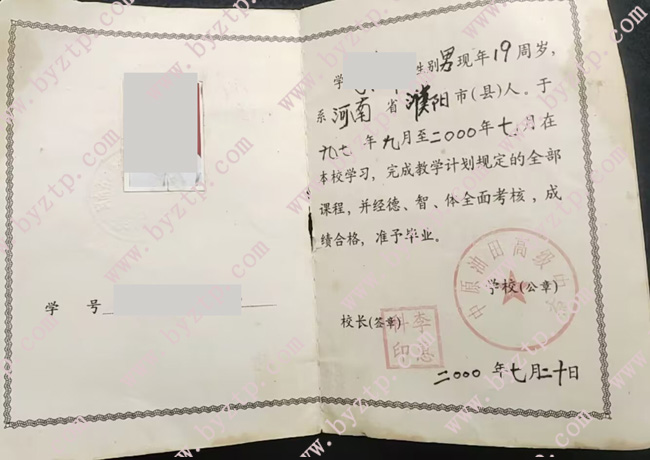 学 号
学 性别男现年19周岁，
系河南省濮阳市(县)人。于
九七年九月至二000年七月在
本校学习，完成教学计划规定的全部
课程，并经德、智、体全面考核，成
绩合格，准予毕业。
中原油田高级中学
学校(公章)
校长(签章)
李志科印
二000年七月二十日
www.byztp.com